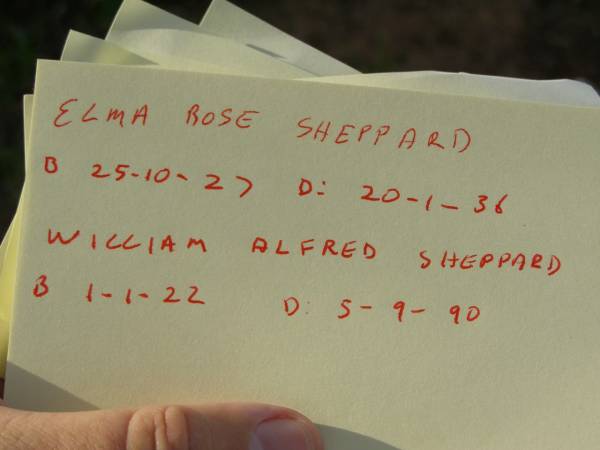 ELMA ROSE SHEPPARD
B 25-10-27 D: 20-1-36
WILLIAM ALFRED SHEPPARD
B 1-1-22 D: 5-9-90